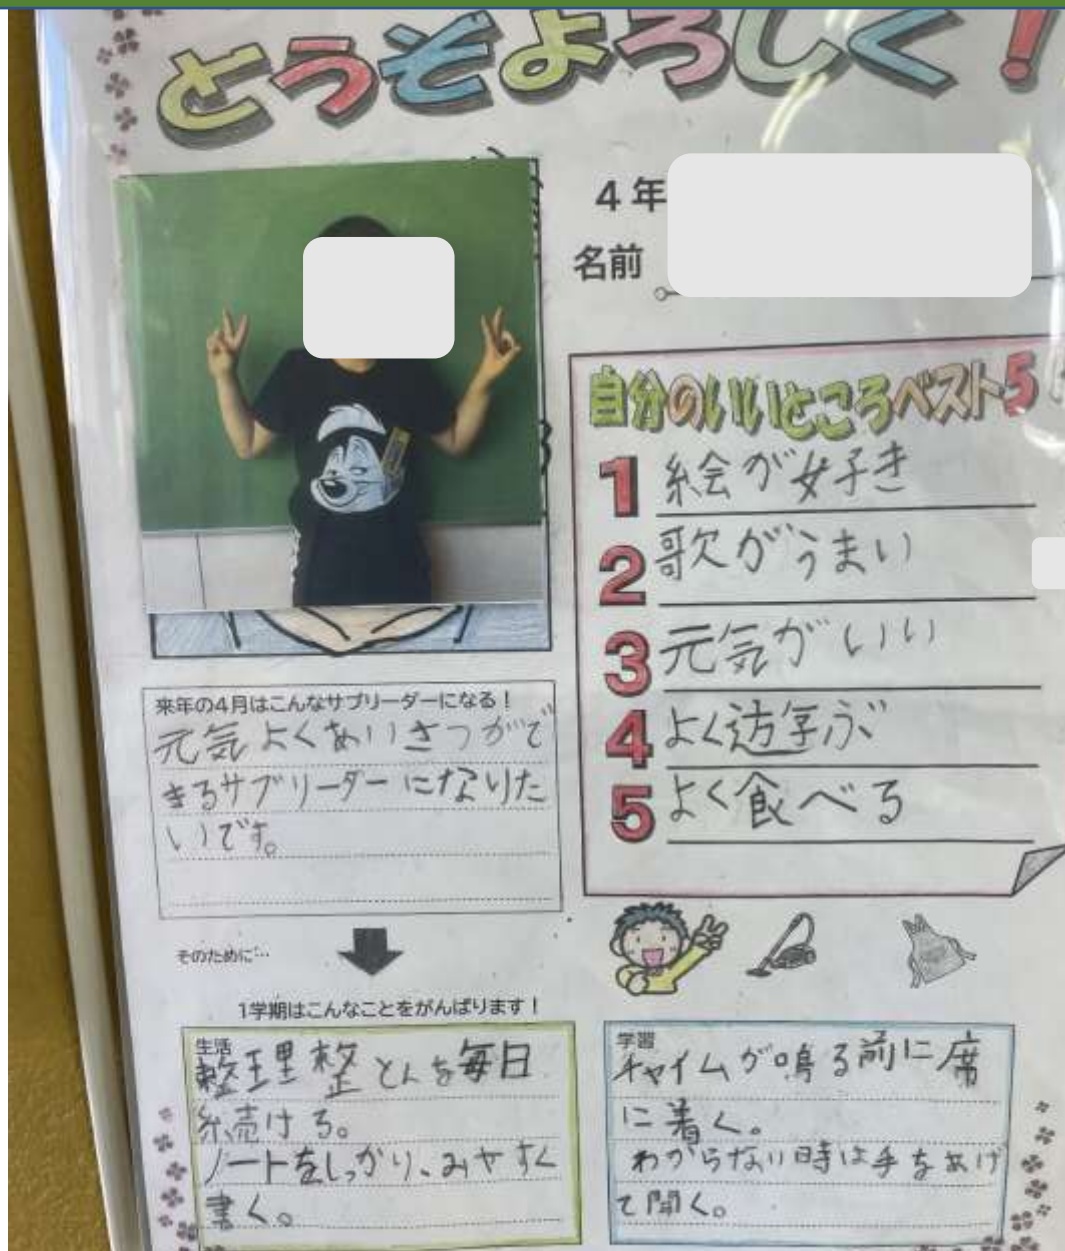 どうぞよろしく!
4年
名前
自分のいいところベスト5
1 絵が好き
2 歌がうまい
3 元気がいい
4 よく遊ぶ
5 よく食べる
来年の4月はこんなサブリーダーになる!
元気よくあいさつがで
きるサブリーダーになりた
いです。
そのために…
1学期はこんなことをがんばります!
生活
整理整とんを毎日
続ける。
ノートをしっかり、みやすく
書く。
学習
チャイムが鳴る前に席
に着く。
わからない時は手をあげ
て聞く。